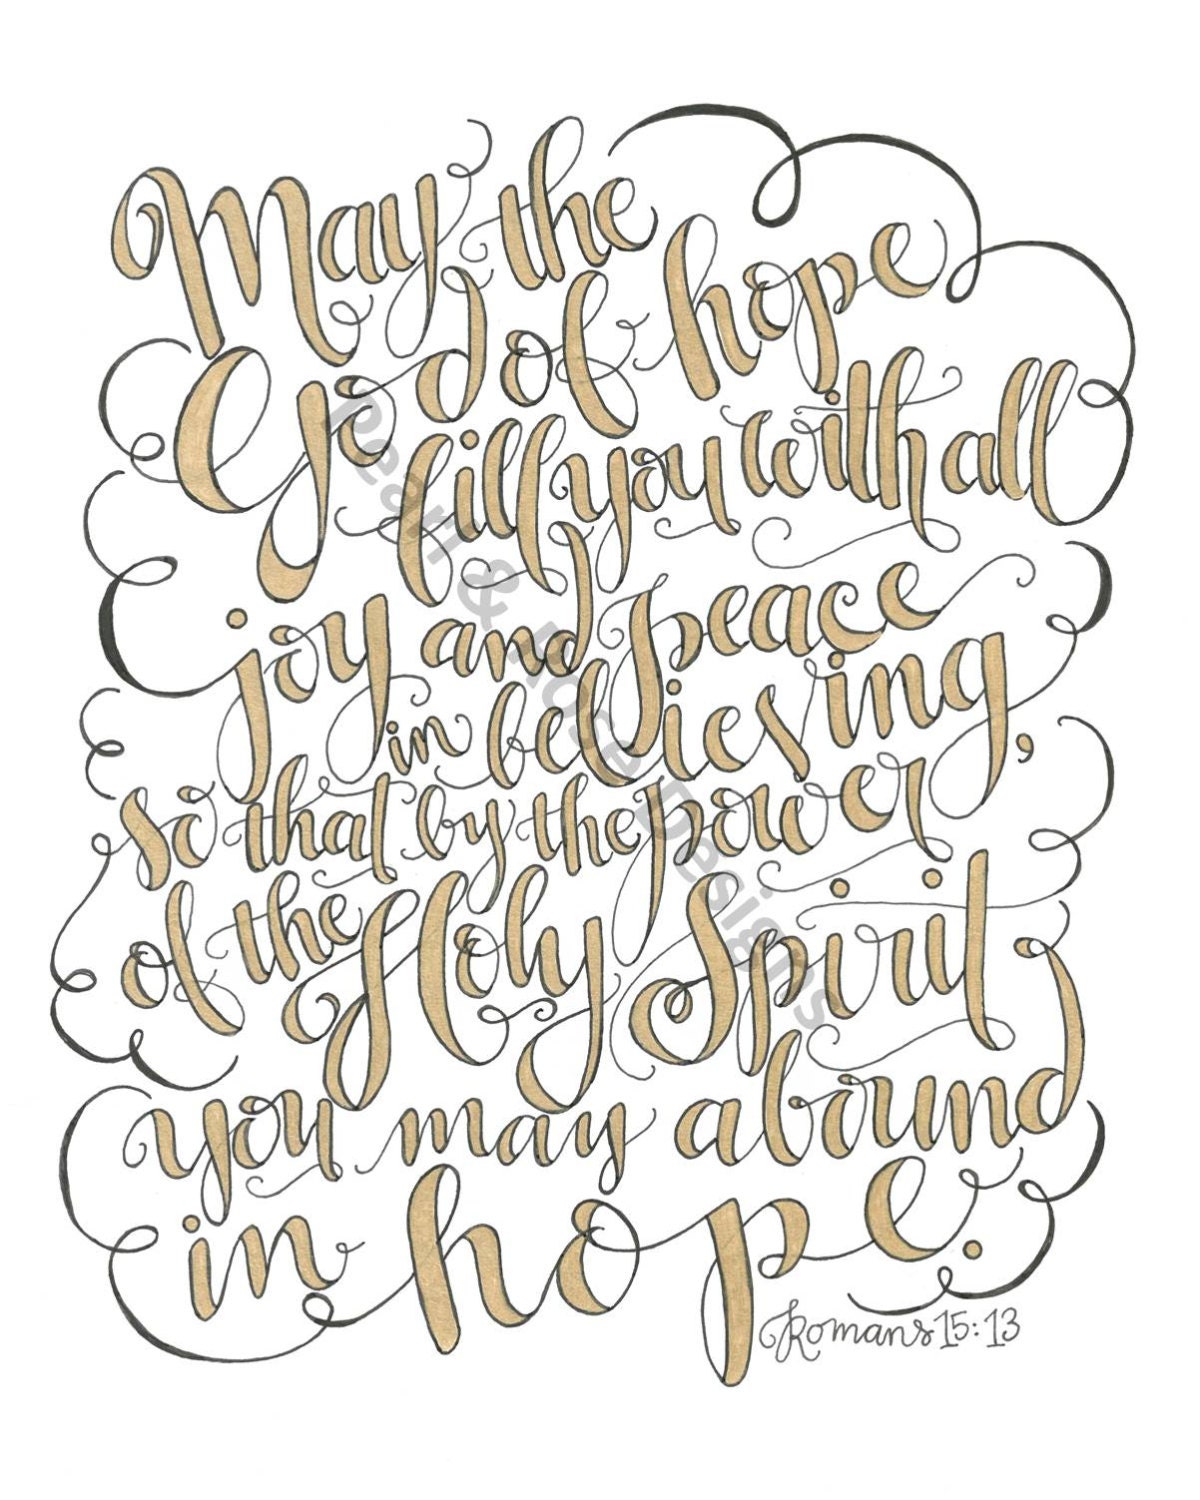 May the
God of hope
fill you with all
joy and peace
in believing,
so that by the power
of the Holy Spirit
you may abound
in hope.
Romans 15:13
Pearl & Rose Designs